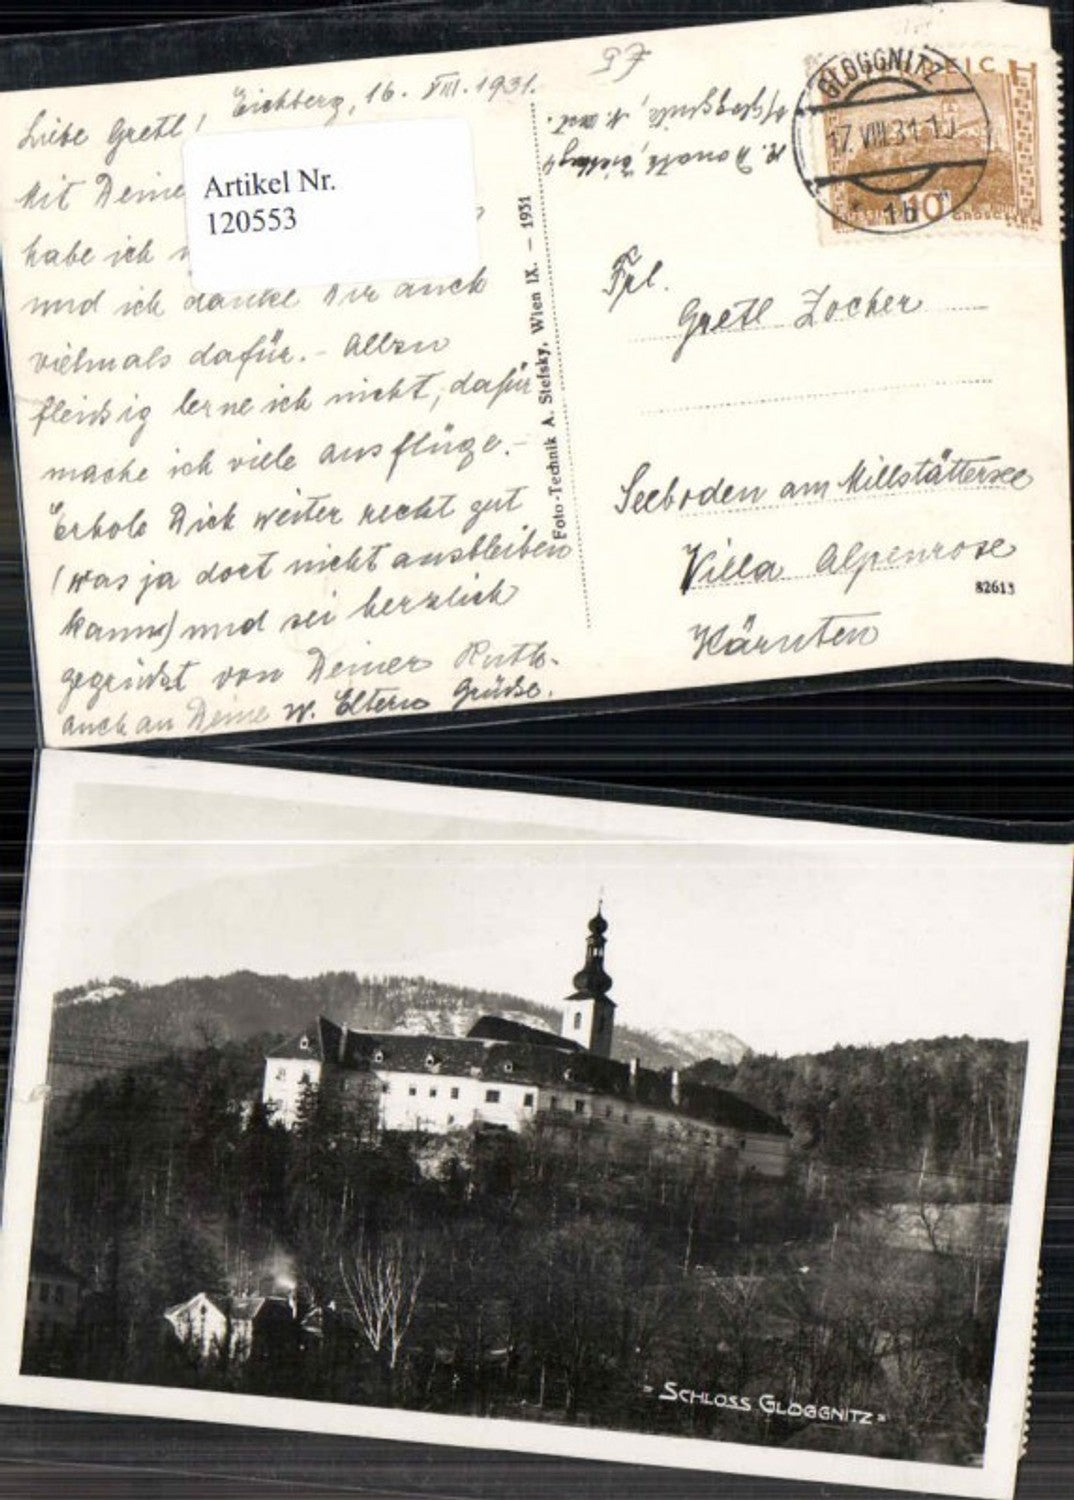 Eichberg, 16. VIII. 1931.
Liebe Gretl!
Mit Deine
habe ich
und ich danke Dir auch
vielmals dafür. - Allzu
fleißig lerne ich nicht, dafür
mache ich viele Ausflüge. -
Erhole Dich weiter recht gut
(was ja dort nicht ausbleiben
kann) und sei herzlich
gegrüßt von Deiner Ruth.
auch an Deine w. Eltern Grüße.
Artikel Nr.
120553
Foto-Technik A. Stefsky, Wien IX. – 1931
GLOGGNITZ
17. VIII. 31-10
1b
REICH
10
GROSCHEN
Frl.
Gretl Zocher
Seeboden am Millstättersee
Villa Alpenrose
82613
Kärnten
"SCHLOSS GLOGGNITZ"